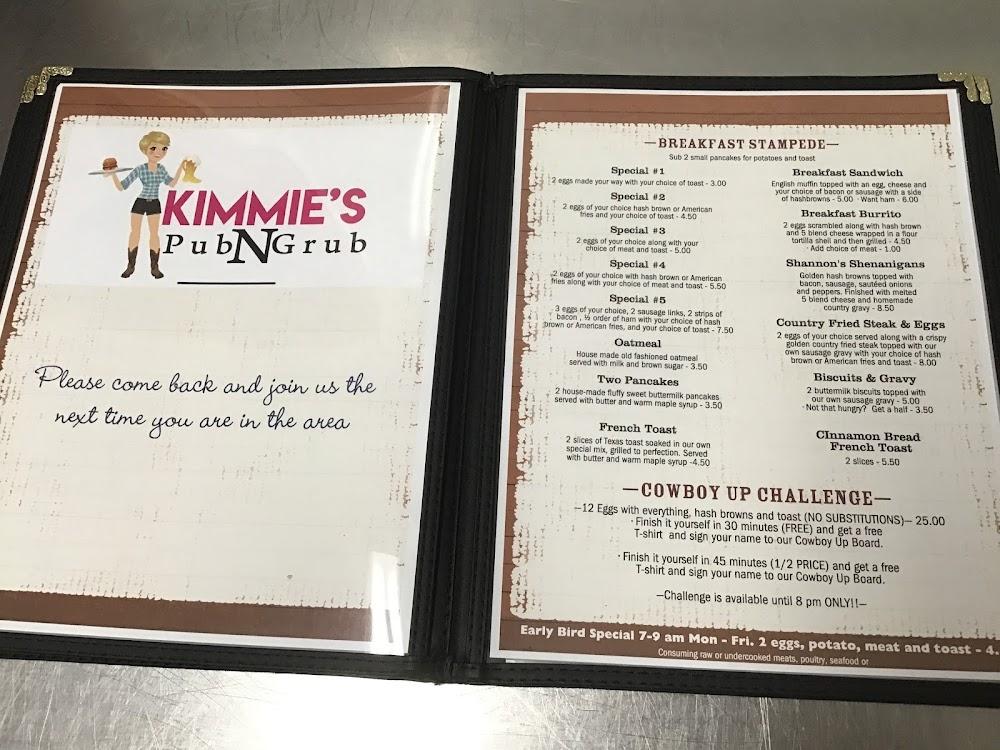 KIMMIE'S
PubNGrub
Please come back and join us the
next time you are in the area
—BREAKFAST STAMPEDE—
Sub 2 small pancakes for potatoes and toast
Special #1
2 eggs made your way with your choice of toast - 3.00
Special #2
2 eggs of your choice hash brown or American
fries and your choice of toast - 4.50
Special #3
2 eggs of your choice along with your
choice of meat and toast - 5.00
Special #4
2 eggs of your choice with hash brown or American
fries along with your choice of meat and toast - 5.50
Special #5
3 eggs of your choice, 2 sausage links, 2 strips of
bacon , ½ order of ham with your choice of hash
brown or American fries, and your choice of toast - 7.50
Oatmeal
House made old fashioned oatmeal
served with milk and brown sugar - 3.50
Two Pancakes
2 house-made fluffy sweet buttermilk pancakes
served with butter and warm maple syrup - 3.50
French Toast
2 slices of Texas toast soaked in our own
special mix, grilled to perfection. Served
with butter and warm maple syrup -4.50
Breakfast Sandwich
English muffin topped with an egg, cheese and
your choice of bacon or sausage with a side
of hashbrowns - 5.00 · Want ham - 6.00
Breakfast Burrito
2 eggs scrambled along with hash brown
and 5 blend cheese wrapped in a flour
tortilla shell and then grilled - 4.50
· Add choice of meat - 1.00
Shannon's Shenanigans
Golden hash browns topped with
bacon, sausage, sautéed onions
and peppers. Finished with melted
5 blend cheese and homemade
country gravy - 8.50
Country Fried Steak & Eggs
2 eggs of your choice served along with a crispy
golden country fried steak topped with our
own sausage gravy with your choice of hash
brown or American fries and toast - 8.00
Biscuits & Gravy
2 buttermilk biscuits topped with
our own sausage gravy - 5.00
· Not that hungry? Get a half - 3.50
CInnamon Bread
French Toast
2 slices - 5.50
—COWBOY UP CHALLENGE—
—12 Eggs with everything, hash browns and toast (NO SUBSTITUTIONS)— 25.00
· Finish it yourself in 30 minutes (FREE) and get a free
T-shirt and sign your name to our Cowboy Up Board.
· Finish it yourself in 45 minutes (1/2 PRICE) and get a free
T-shirt and sign your name to our Cowboy Up Board.
—Challenge is available until 8 pm ONLY!!—
Early Bird Special 7-9 am Mon - Fri. 2 eggs, potato, meat and toast - 4.
Consuming raw or undercooked meats, poultry, seafood or